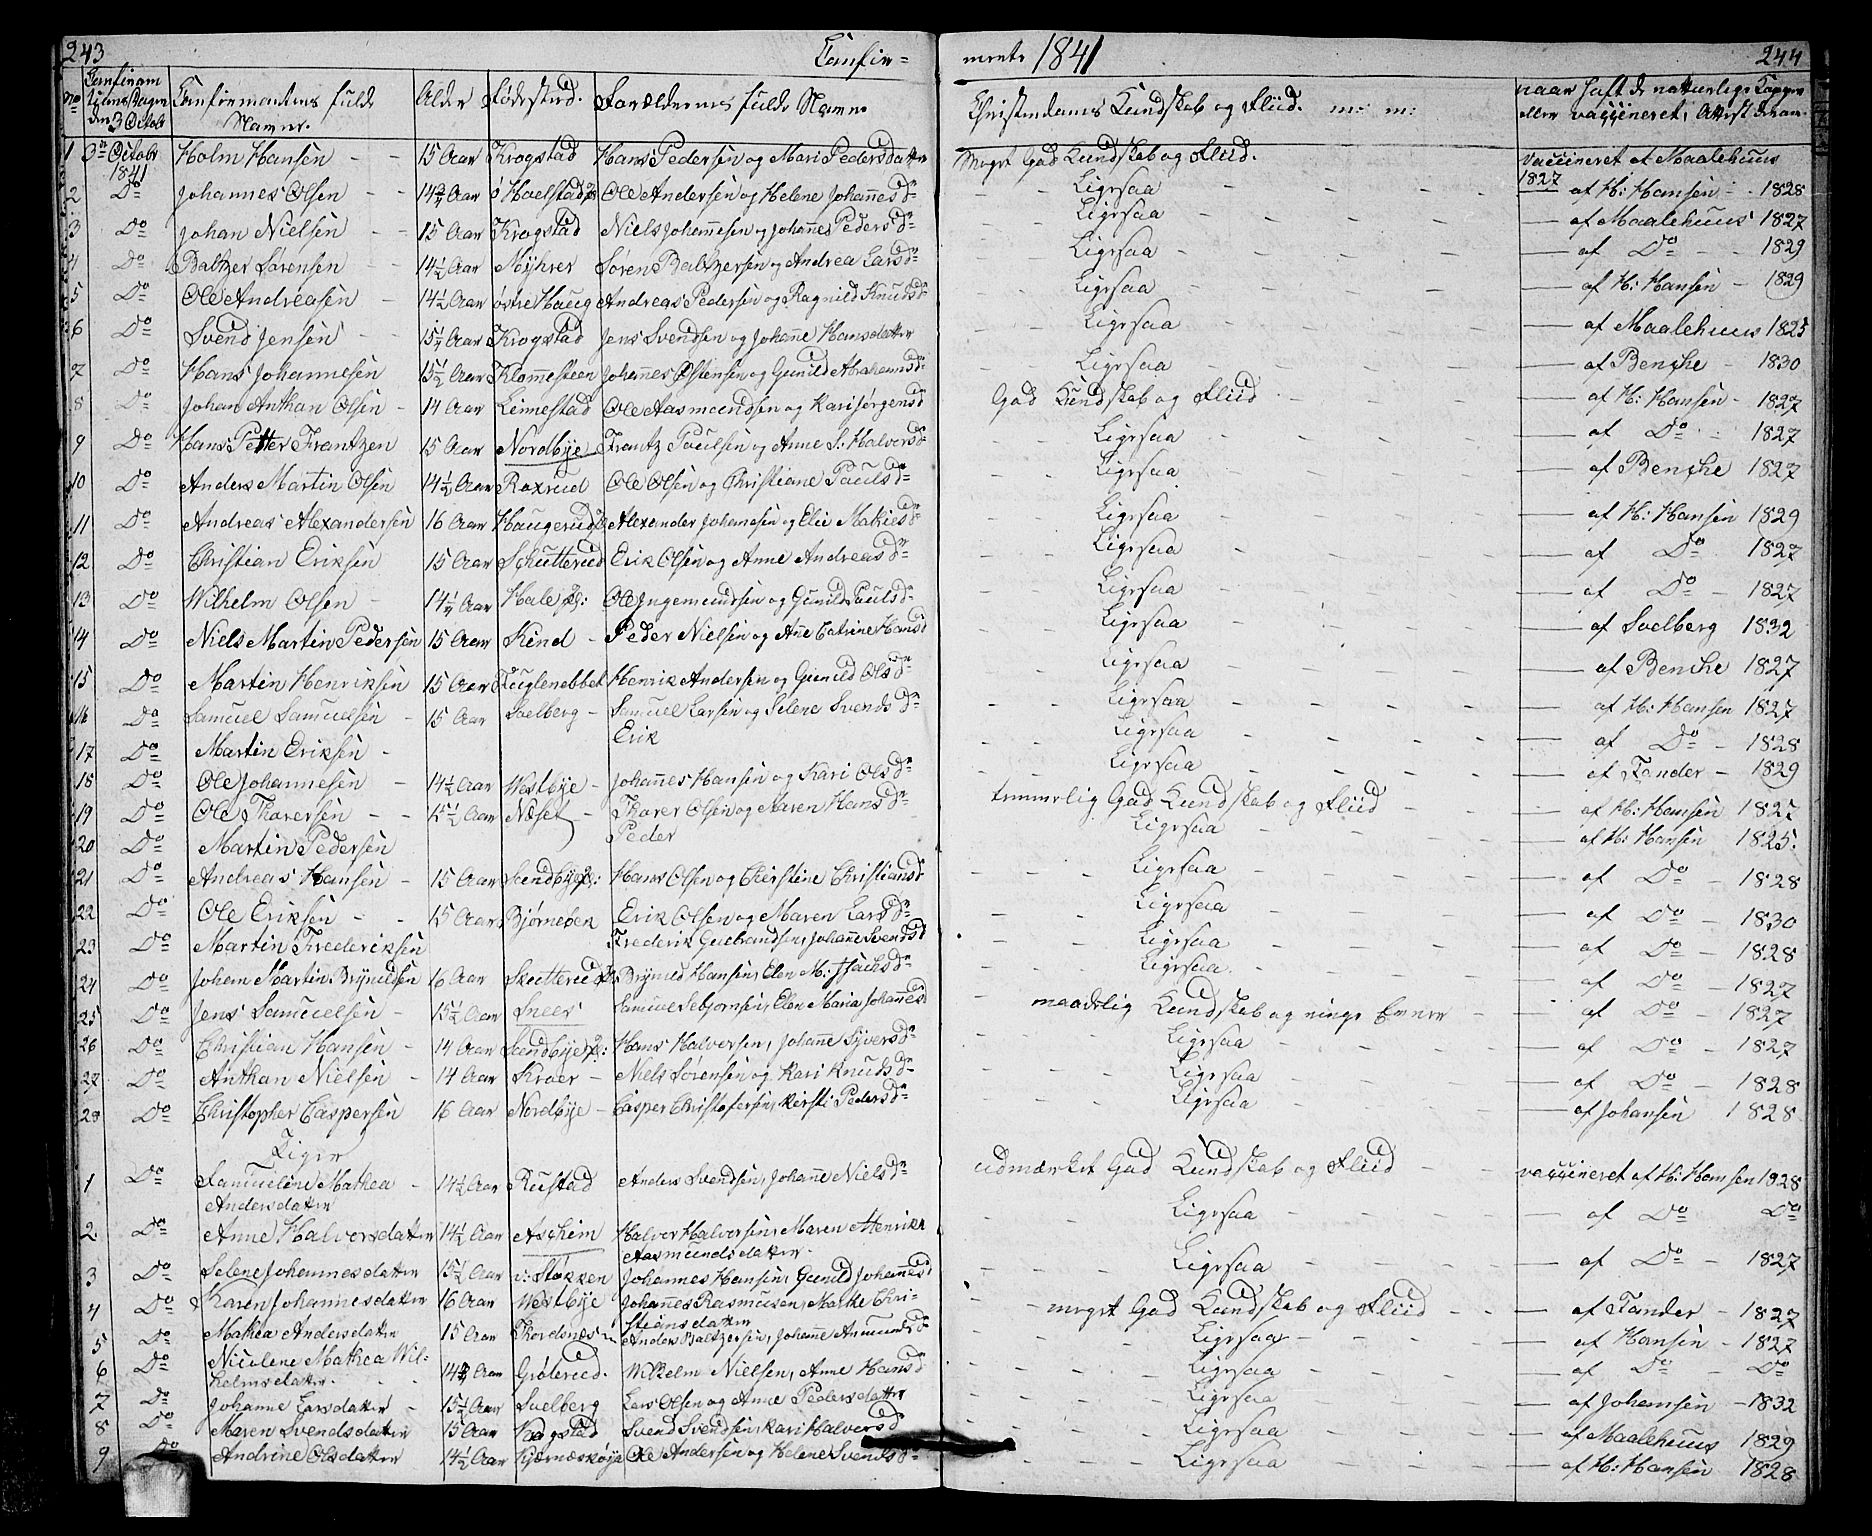 243 Confir=
ments 1841 244
No Confirmations Dagen den 3 Octobr Confirmantens fulde Navne. Alder Fødested. Forældrenes fulde Navne Christendoms Kundskab og Fliid. m: m: naar haft de naturlige Kopper eller vaccineret, Attest derom.
1 3die Octobr 1841 Holm Hansen - - 15 Aar Krogstad Hans Pedersen og Mari Pedersdatter Meget God Kundskab og Fliid. vaccineret af Maalehuus 1827
2 Do Johannes Olsen - - 14 Aar Ole Andersen og Helene Johannesd Ligesaa af H: Hansen - 1828
3 Do Johan Nielsen - - 15 Aar Krogstad Niels Johannesen og Johanne Pedersd Ligesaa af Maalehuus 1827
4 Do Baltzer Sørensen - - 14½ Aar Nÿhrer Søren Baltzersen og Andrea Larsd Ligesaa af Do - 1829
5 Do Ole Andreasen - 14½ Aar østre Haug Andreas Pedersen og Ragnild Knudsd Ligesaa af H: Hansen - 1829
6 Do Svend Jensen - 15¼ Aar Krogstad Jens Svendsen og Johanne Hansdatter Ligesaa af Maalehuus 1825
7 Do Hans Johannesen 15½ Aar Klommesteen Johannes Olstensen og Gunild Abrahamsd Ligesaa af Benche - 1830
8 Do Johan Anthon Olsen - 14 Aar Linnestad Ole Aasmundsen og Kari Jørgensd God Kundskab og Fliid af H: Hansen - 1827
9 Do Hans Petter Frantzen 15 Aar Nordbÿe Frantz Poulsen og Anne S: Halversd Ligesaa af Do 1827
10 Do Anders Martin Olsen 14½ Aar Roxrud Ole Olsen og Christiane Paulsd Ligesaa af Benche 1827
11 Do Andreas Alexandersen 16 Aar Haugerud Alexander Johannesen og Elie Makiesd Ligesaa af H: Hansen 1829
12 Do Christian Eriksen 15 Aar Schutterud Erik Olsen og Anne Andreasd Ligesaa af Do 1827
13 Do Wilhelm Olsen - 14¼ Aar Hale Ole Ingemundsen og Gunild Paulsd Ligesaa af Do - 1827
14 Do Niels Martin Pedersen 15 Aar Kind - Peder Nielsen og Anne Catrine Hansd Ligesaa af Soelberg 1832
15 Do Martin Henriksen 15 Aar Fuglenebbet Henrik Andersen og Gunild Olsd Ligesaa af Benche 1827
16 Do Samuel Samuelsen - 15 Aar Soelberg - Samuel Larsen og Selene Svendsd Ligesaa af H: Hansen 1827
17 Do Martin Eriksen - Erik Ligesaa af Do - 1828
18 Do Ole Johannesen - 14½ Aar Westbÿe - Johannes Hansen og Kari Olsd Ligesaa af Tander - 1829
19 Do Ole Thoresen - - 15½ Aar Næset - Thorer Olsen og Maren Hansd temmelig God Kundskab og Fliid af H: Hansen 1827
20 Do Martin Pedersen Peder Ligesaa af H: Hansen 1825.
21 Do Andreas Hansen - 15 Aar Sundbÿe Hans Olsen og Chierstine Christiansd Ligesaa af Do - 1828
22 Do Ole Eriksen - - 15 Aar Bjørneøen Erik Olsen og Maren Larsd Ligesaa af Do - 1830
23 Do Martin Frederiksen Frederik Gulbrandsen, Johanne Svendsd Ligesaa af Do - 1828
24 Do Johan Martin Brÿnildsen 16 Aar Skutterud Brÿnild Hansen, Elen M: Isachsd Ligesaa af Do - 1827
25 Do Jens Samuelsen - 15½ Aar Snees Samuel Sebjørnsen, Elen Maria Johannesd maadelig Kundskab og ringe Evner af Do - 1827
26 Do Christian Hansen - 14 Aar Sundbÿe Hans Halversen, Johanne Siversd Ligesaa af Do - 1827
27 Do Anthon Nielsen - 14 Aar Kroer - Niels Sørensen og Kari Knudsd Ligesaa af Do - 1828
28 Do Christopher Caspersen 16 Aar Nordbÿe - Casper Christofersen, Kirsti Pedersd Ligesaa af Johansen 1828
Piger
1 Do Samueline Mathea Andersdatter - 14½ Aar Rustad Anders Svendsen, Johanne Nielsd udmærket God Kundskab og Fliid vaccineret af H: Hansen 1828
2 Do Anne Halvorsdatter 14½ Aar Aschim Halvor Halversen, Maren Henrike Aasmundsdatter Ligesaa af Do Do
3 Do Selene Johannesdatter 15½ Aar v: Støkken Johannes Hansen, Gunild Johannesd Ligesaa af Do - 1827
4 Do Karen Johannesdatter 16 Aar Westbÿe Johannes Rasmusen, Marthe Christiansdatter meget God Kundskab og Fliid af Tander - 1827
5 Do Mathea Andersdatter 15 Aar Anders Baltzersen, Johanne Ammundsd Ligesaa af Hansen - 1827
6 Do Nicoline Mathea Wilhelmsdatter 14 Aar Grøterud. Wilhelm Nielsen, Anne Hansd Ligesaa af Do Do
7 Do Johanne Larsdatter - 15½ Aar Soelberg Lars Olsen og Anne Pedersdatter Ligesaa af Johansen - 1832
8 Do Maren Svendsdatter 15 Aar Krogstad Svend Svendsen, Kari Halversd Ligesaa af Maalehuus 1829
9 Do Andrine Olsdatter 14½ Aar Kjærnæskøja Ole Andersen og Helene Svendsd Ligesaa af H: Hansen 1828